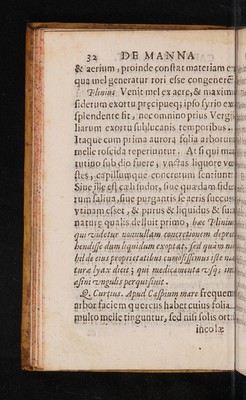 32 DE MANNA
& aerium, proinde constat materiam ex
qua mel generatur rori esse congenerẽ
Plinius Venit mel ex aere, & maximè
siderum exortu præcipueq; ipso syrio ex
splendente fit, nec omnino prius Vergi
liarum exortu sublucanis temporibus.
Itaque cum prima aurora folia arborum
melle roscida reperiuntur. At si qui ma
tutino sub dio fuere, vnctas liquore ve
stes, capillumque concretum sentiunt.
Siue ille est cæli sudor, siue quædam side
rum saliua, siue purgantis se aeris succus
vtinam esset, & purus & liquidus & suæ
naturę qualis defluit primo, hæc Plinius
qui videtur nonnullam concretionem depre
hendisse dum liquidum exoptat, sed quàm ni
hil de eius proprietatibus curiosissimus iste na
turæ lyax dicit; qui medicamenta vsq; in
asini vngulis perquisiuit.
Q. Curtius. Apud Caspium mare frequens
arbor faciem quercus habet cuius folia
multo melle tinguntur, sed nisi solis ort
incolæ